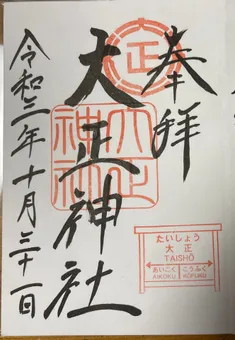 奉拝
正
大正神社
大正
神社
令和三年十月三十一日
たいしょう
大正
TAISHŌ
あいこく こうふく
AIKOKU KŌFUKU